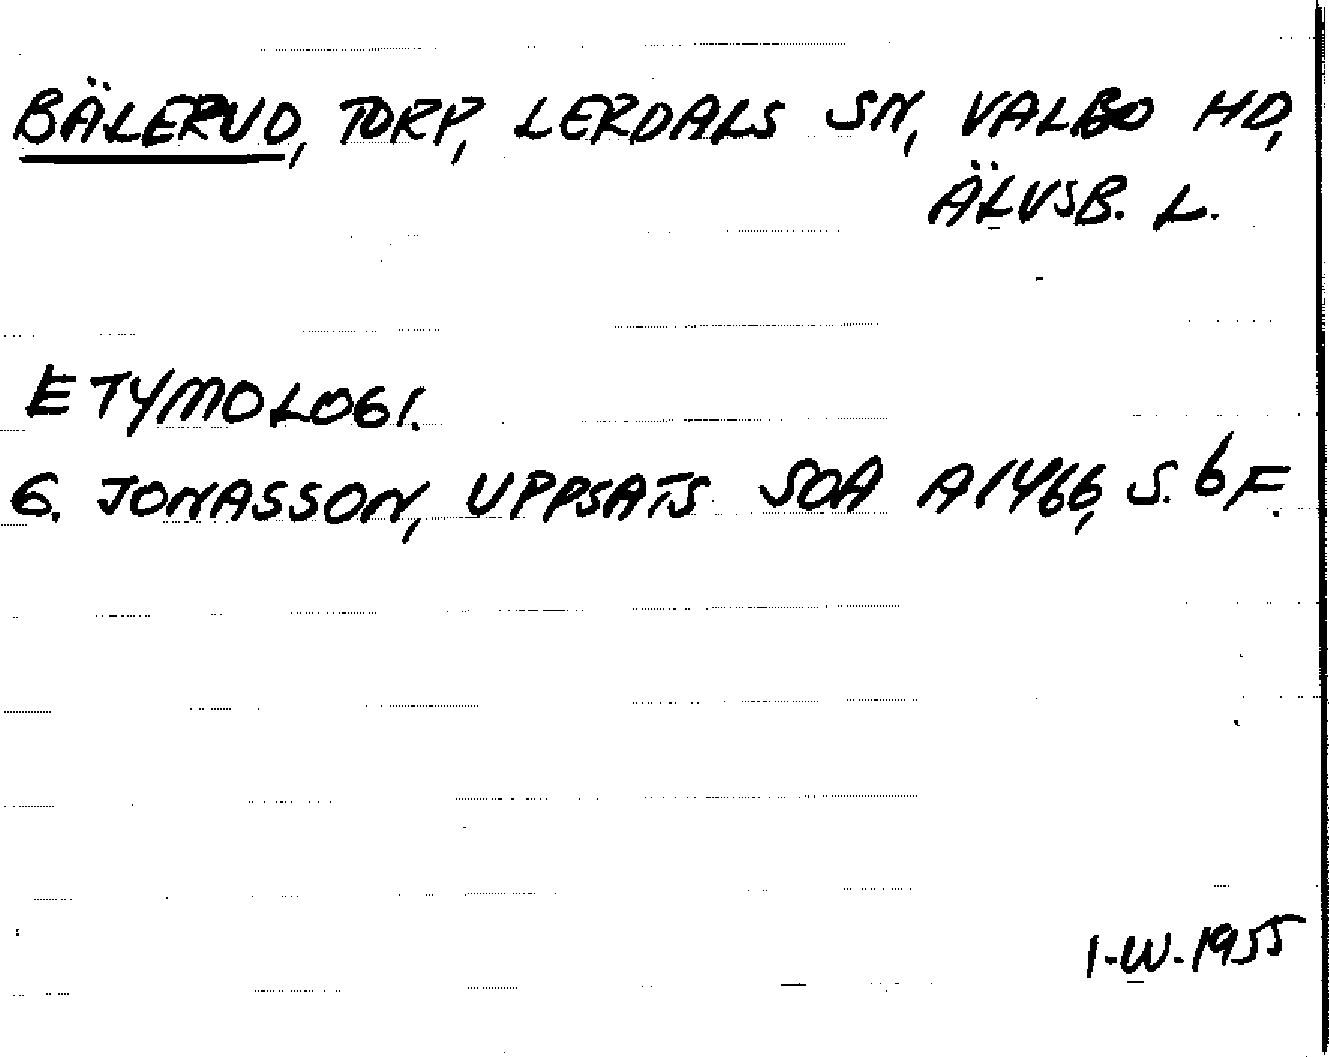 BÄLERUD, TORP, LERDALS SN, VALBO HD,
ÄLVSB. L.
ETYMOLOGI.
G. JONASSON, UPPSATS SOA A1466, S. 6 F.
I-W. 1955